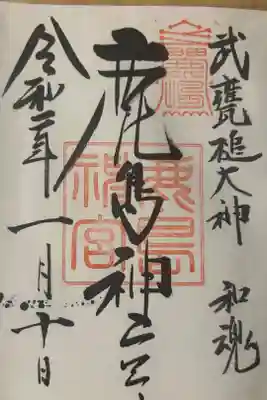 武甕槌大神 和魂
鹿島神宮
鹿島
神宮
令和二年一月十日